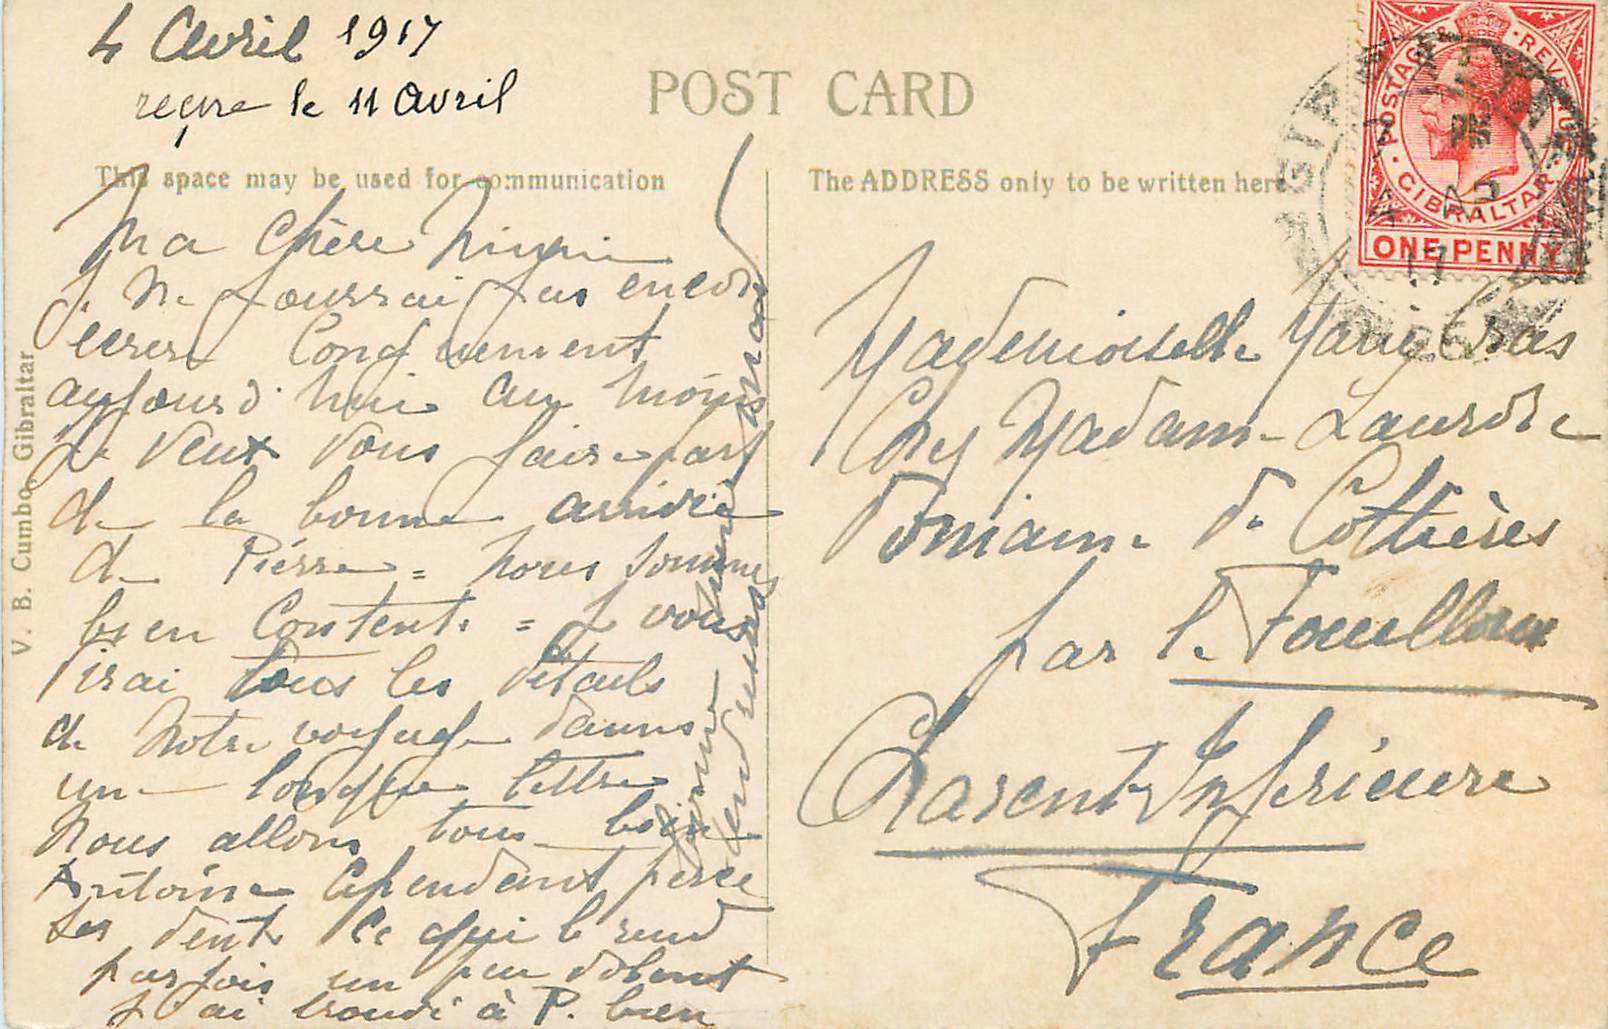 4 avril 1917
reçue le 11 avril
POST CARD
This space may be used for communication
The ADDRESS only to be written here
V. B. Cumbo, Gibraltar
POSTAGE & REVENUE
GIBRALTAR
ONE PENNY
GIBRALTAR
PM
4 AP
17
Ma chère
Je ne pourrai pas encore
écrire longuement
aujourd'hui au moins
je veux vous faire part
de la bonne arrivée
de Piérre = nous sommes
bien contents = je vous
dirai tous les détails
de notre voyage dans
une longue lettre
nous allons tous bien
Antoine cependant perce
ses dents ce qui le rend
parfois un peu dolent
J'ai trouvé à P. bien
bonne mine
Mademoiselle Marie Gras
Chez Madame Laurore
Domaine de Cottières
par le Fouilloux
Charente Inférieure
France